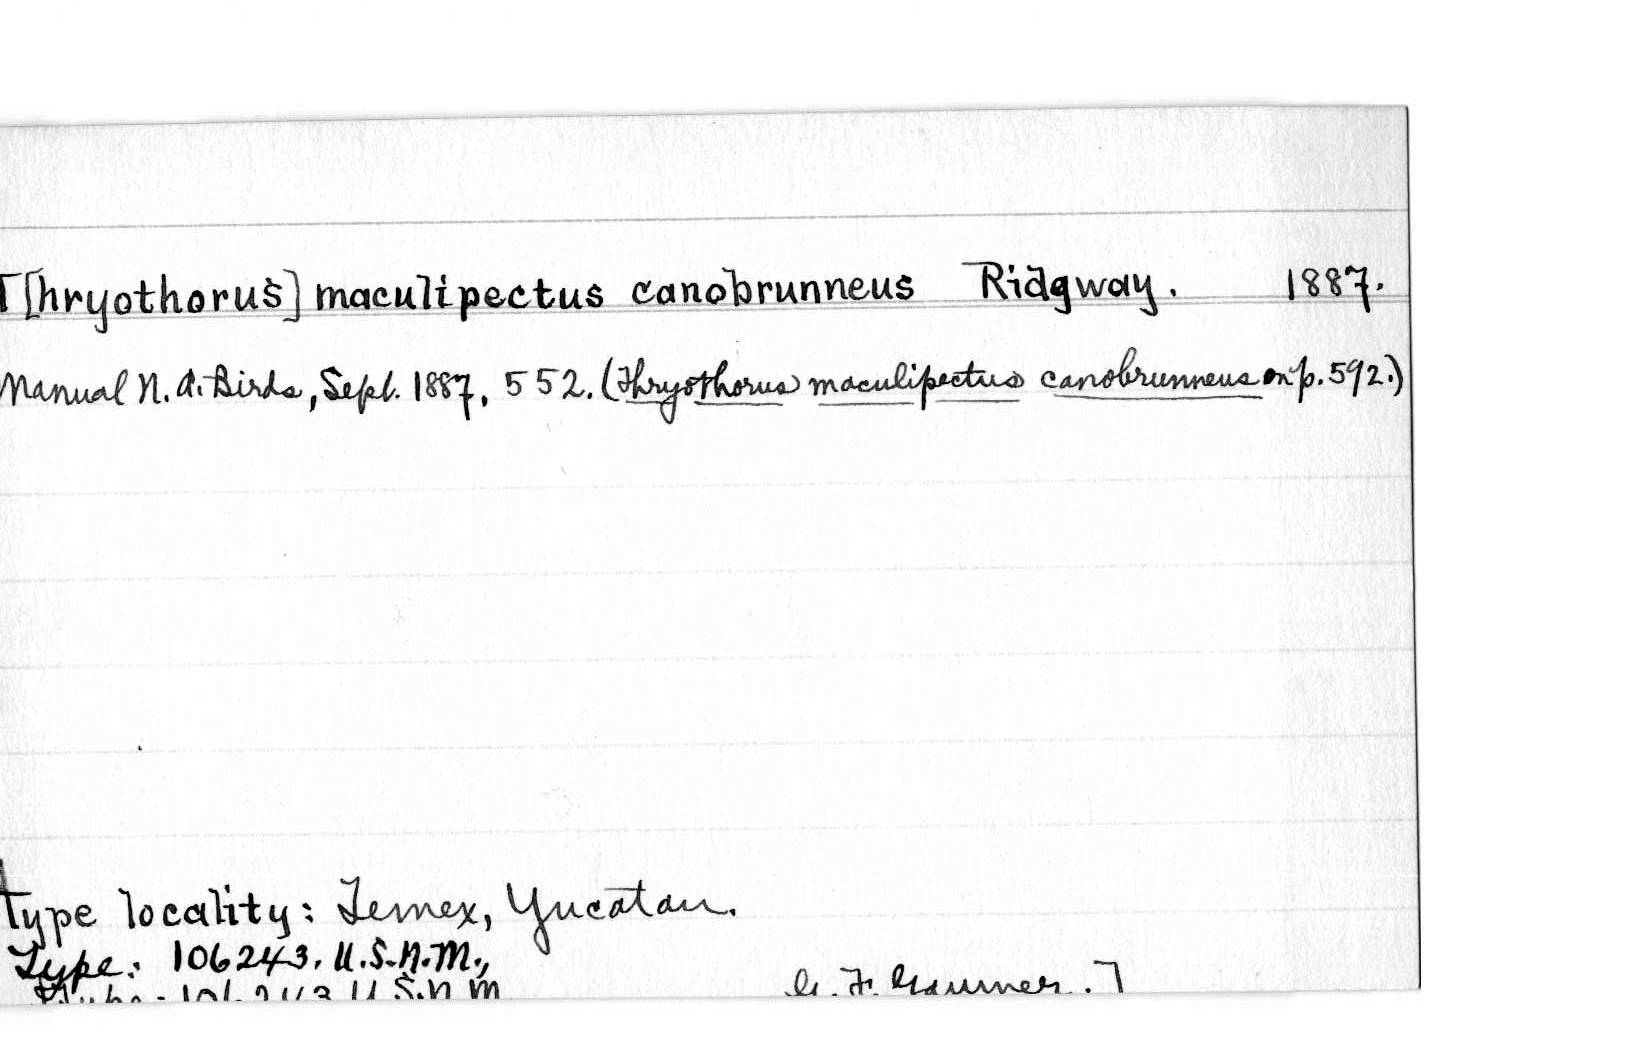 T[hryothorus] maculipectus canobrunneus Ridgway. 1887.
Manual N. A. Birds, Sept. 1887, 552. (Thryothorus maculipectus canobrunneus on p. 592.)
Type locality: Temex, Yucatan.
Type: 106243. U.S.N.M.,
Type: 106243 U.S.N.M G. F. Gaumer.]